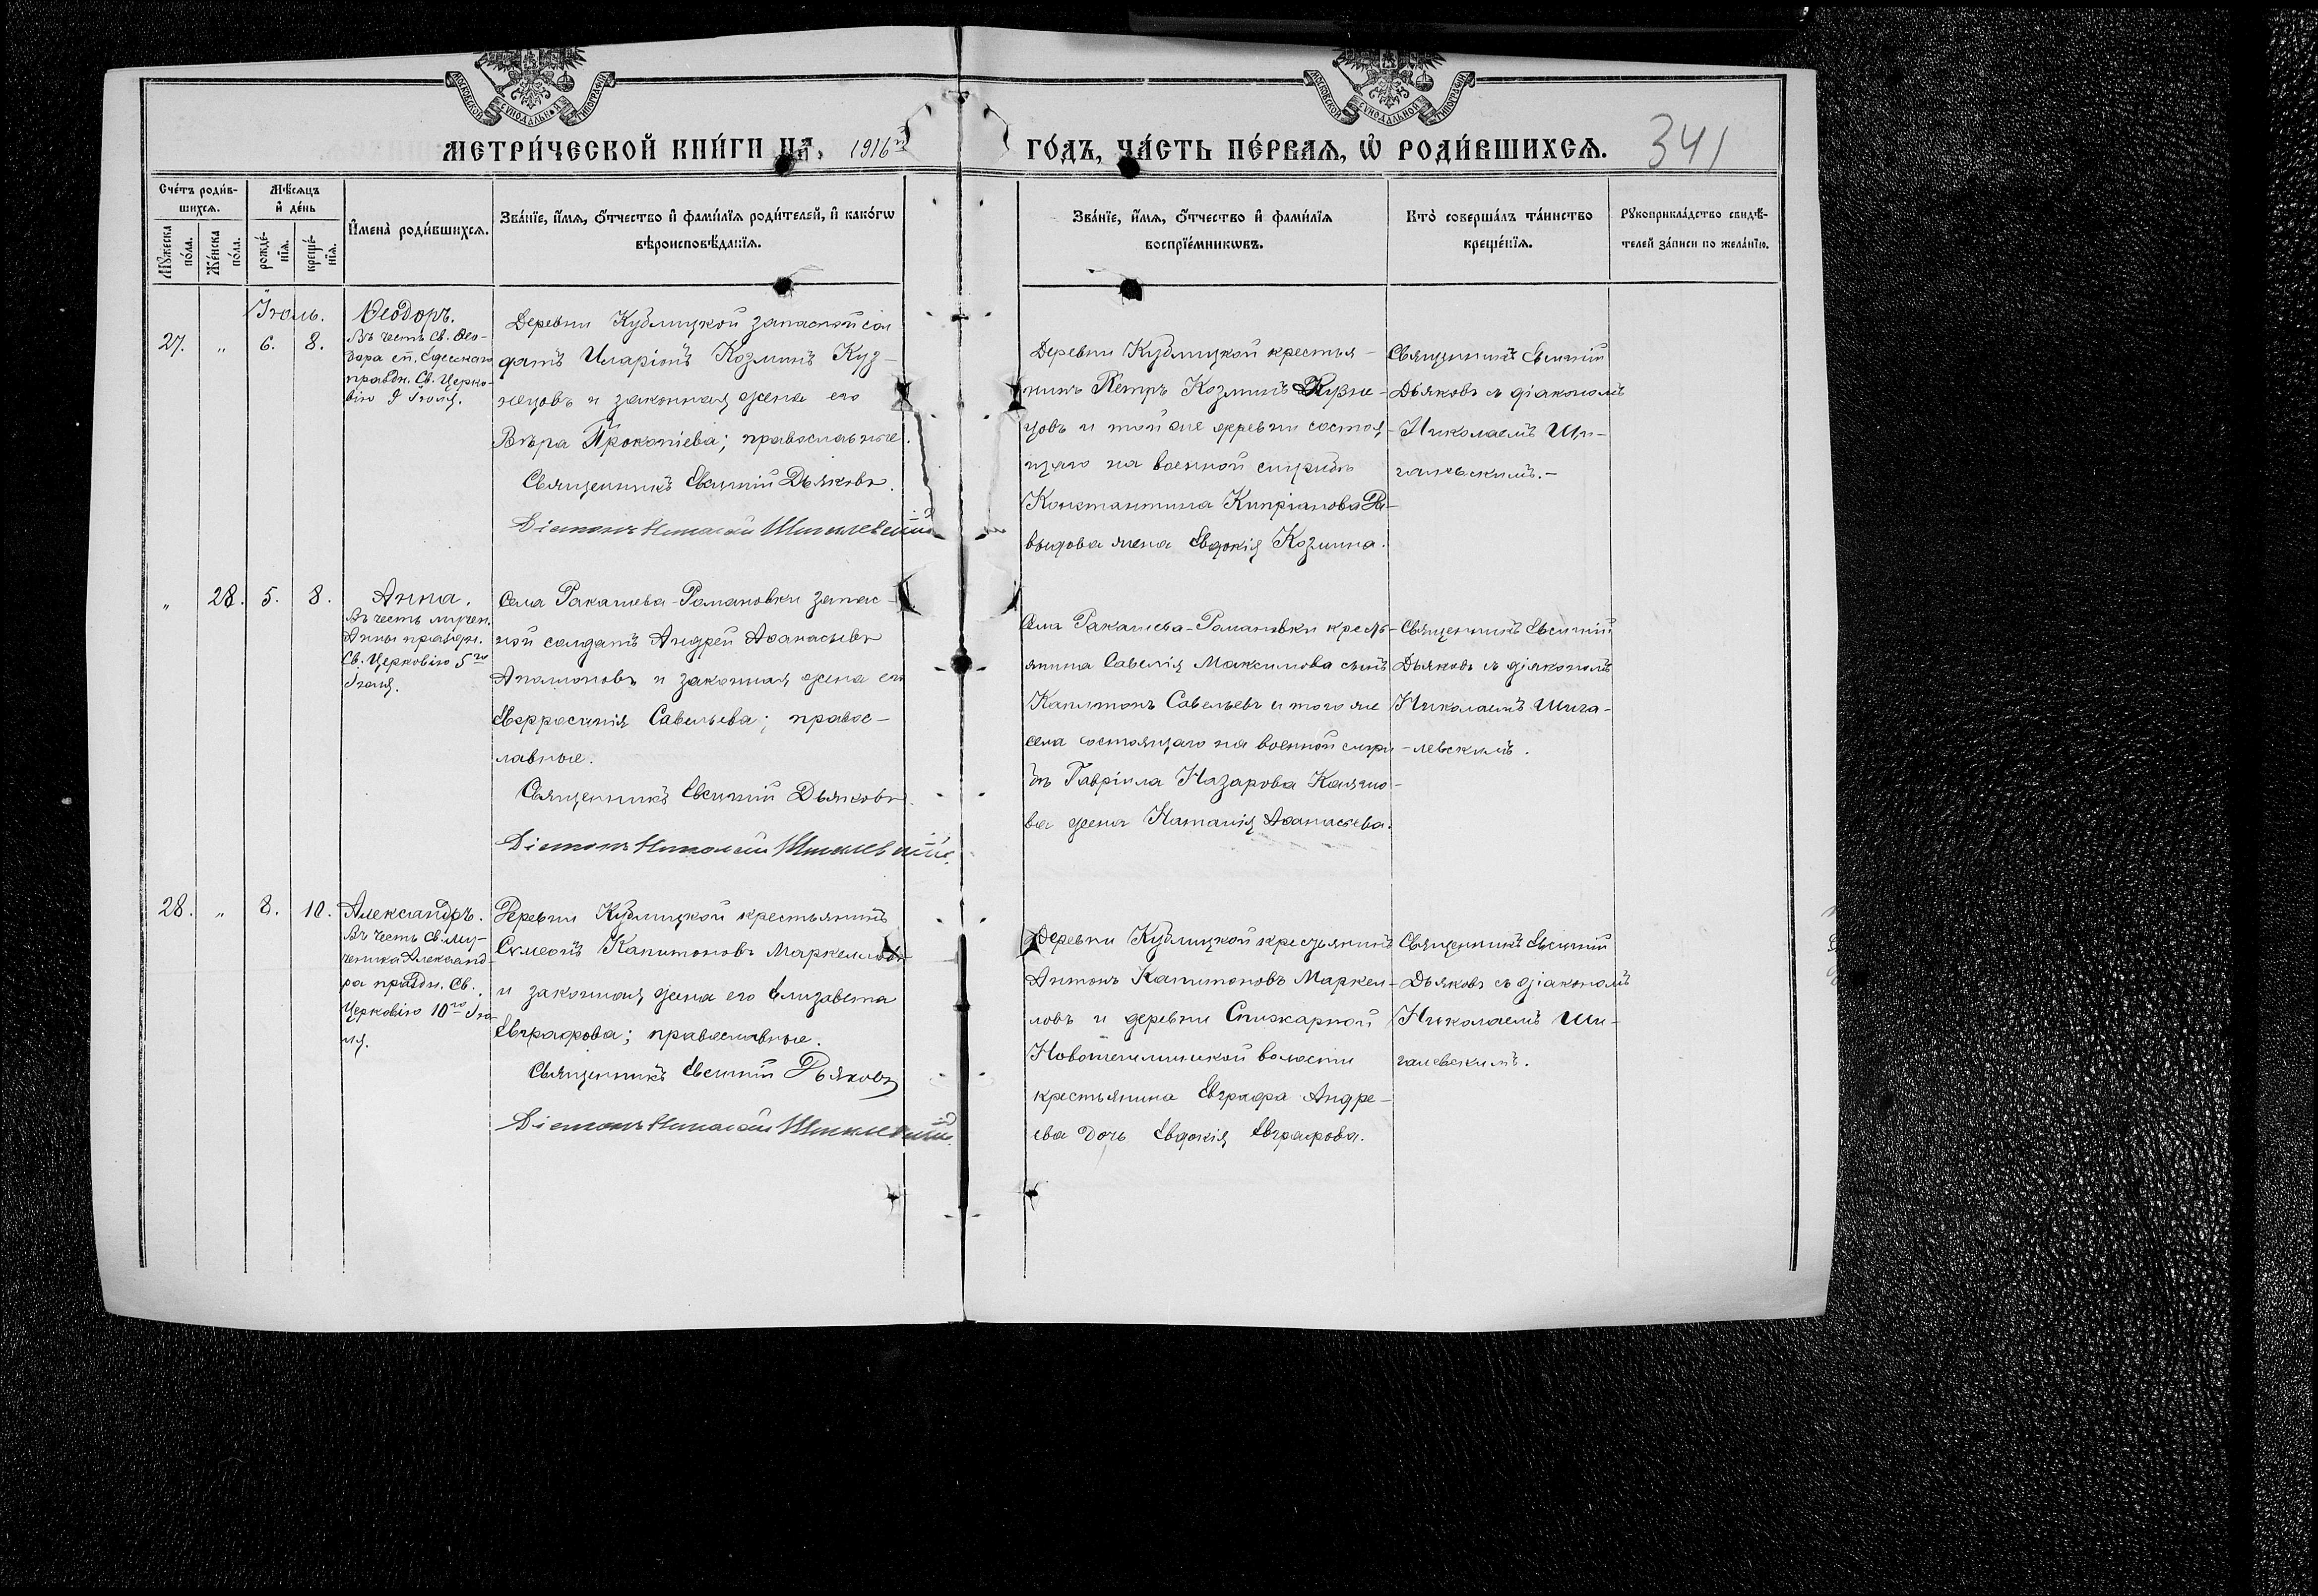 МОСКОВСКОЙ СУНОДАЛЬНОЙ ТИПОГРАФІИ
МОСКОВСКОЙ СУНОДАЛЬНОЙ ТИПОГРАФІИ
МЕТРИ́ЧЕСКОЙ КНИ́ГИ НА 1916й
ГО́ДЪ, ЧА́СТЬ ПЕ́РВАЯ, Ѡ РОДИ́ВШИХСЯ.
341
Сче́тъ роди́в-
шихся.
Мꙋ́жеска по́ла.
Же́нска по́ла.
Мѣ́сяцъ
и҆ де́нь
рожде́-
нїя.
креще́-
нїя.
И҆мена̀ роди́вшихся.
Зва́нїе, и҆́мя, ѻ҆́тчество и҆ фами́лїя роди́телей, и҆ како́гѡ
вѣроисповѣ́данїя.
Зва́нїе, и҆́мя, ѻ҆́тчество и҆ фами́лїя
воспрїе́мникѡвъ.
Кто̀ соверша́лъ та́инство
креще́нїя.
Рꙋкоприкла́дство свидѣ́-
телей за́писи по жела́нїю.
Іюль.
27. „ 6. 8.
Ѳеодоръ.
Въ честь св. Ѳео-
дора еп. Едесскаго
праздн. Св. Церко-
вію 9 Іюля.
Деревни Кублицкой запасной сол
датъ Иларіонъ Козминъ Куз-
нецовъ и законная жена его
Вѣра Прокопіева; православные.
Священникъ Евсигній Дьяковъ.
Діаконъ Николай Шигалевскій
Деревни Кублицкой крестья-
нинъ Петръ Козминъ Кузне-
цовъ и той же деревни состоя-
щаго на военной службѣ
Константина Кипріанова Да-
выдова жена Евдокія Козмина.
Священникъ Евсигній
Дьяковъ съ діакономъ
Николаемъ Ши-
галевскимъ.-
„ 28. 5. 8.
Анна.
Въ честь мучен.
Анны праздн.
Св. Церковію 5го
Іюля.
Села Ракашева-Романовки запас-
ной солдатъ Андрей Аѳанасьевъ
и законная жена его
Евфросинія Савельева; правос-
лавные.
Священникъ Евсигній Дьяковъ.
Діаконъ Николай Шигалевскій.
Села Ракашева-Романовки кресть-
янина Савелія Максимова сынъ
Капитонъ Савельевъ и того же
села состоящаго на военной служ
бѣ Гавріила Назарова
ва жена Наталія Аѳанасьева.
Священникъ Евсигній
Дьяковъ съ діакономъ
Николаемъ Шига-
-левскимъ.
28. „ 8. 10.
Александръ.
Въ честь св. му-
ченика Александ-
ра праздн. Св.
Церковію 10го Ію-
ля.
Деревни Кублицкой крестьянинъ
Сумеонъ Капитоновъ Маркелловъ
и законная жена его Елизавета
Евграфова; православные.
Священникъ Евсигній Дьяковъ
Діаконъ Николай Шигалевскій.
Деревни Кублицкой крестьянинъ
Антонъ Капитоновъ Маркел-
ловъ и деревни
волости
крестьянина Евграфа Андре-
ева дочь Евдокія Евграфова.
Священникъ Евсигній
Дьяковъ съ діакономъ
Николаемъ Ши-
галевскимъ.